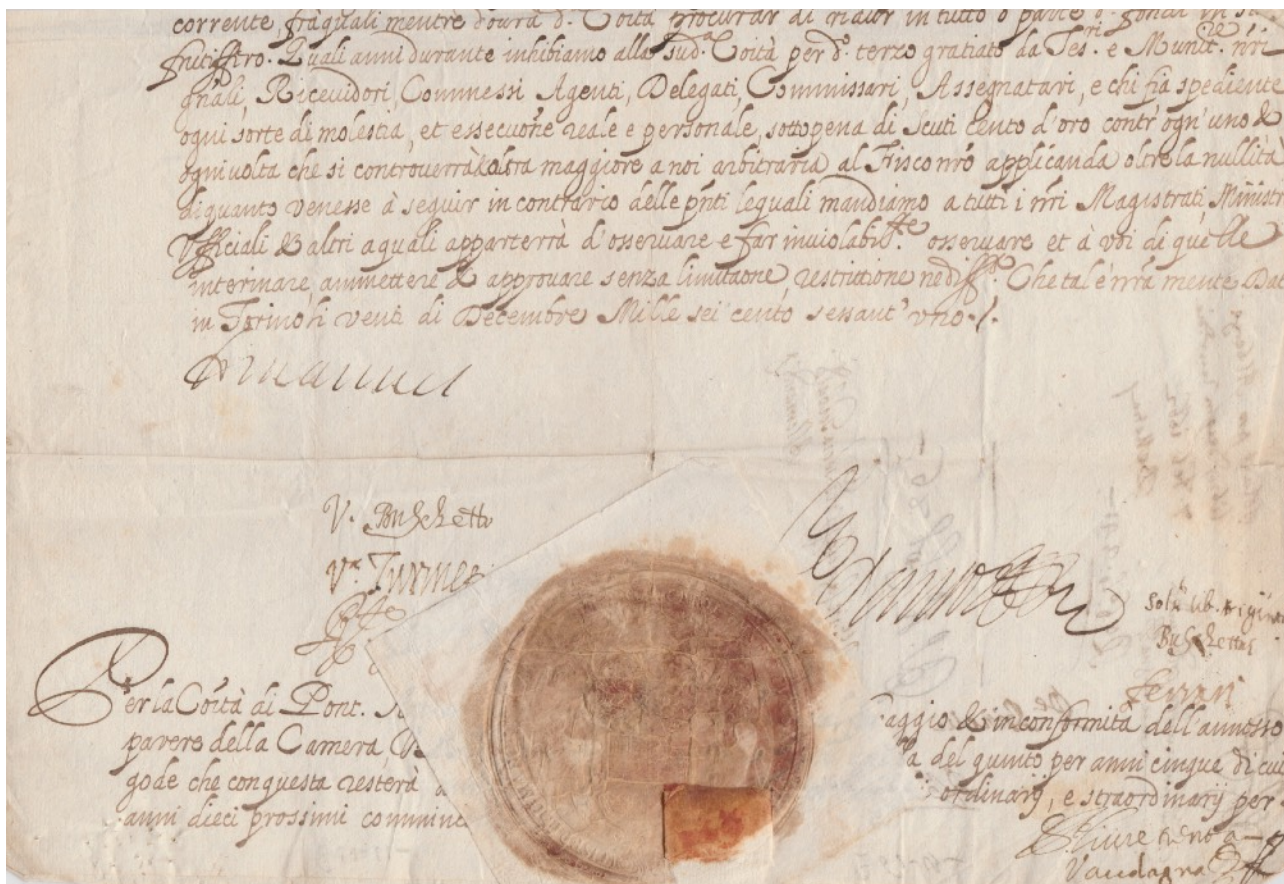 corrente, fra quali mentre dourà d.ª Coità procurar di ridur in tutto o parte
Quali anni durante inhibiamo alla sud.ª Coità per d.º terzo gratiato da Tes.ri e Munit.
gñali, Ricevidori, Commessi Agenti, Delegati, Commissari, Assegnatari, e chi fia spediente
ogni sorte di molestia, et essecuoñe reale e personale, sotto pena di scuti cento d'oro contr'ogn'uno &
ogni volta che si controverrà & altra maggiore a noi arbitraria al Fisco nrõ applicanda oltre la nullità
di quanto venesse à seguir in contrario delle pñti le quali mandiamo a tutti i nrĩ Magistrati, Ministri
Ufficiali & altri a quali apparterrà d'osseruare e far inuiolabil.te osseruare et à voi di quelle
interinare, ammettere & approuare senza limitaõne, restrittione ne diff.tà Che tal è nrã mente Dat
in Torino li venti di Decembre Mille sei cento sessant'uno./.
Emanuel
V. Buschetto
V.ª Turinet
Solũ lib.
Buschettus
Ferrari
Per la Coità di Pont.
aggio & in conformità dell'annesso
parere della Camera, V.
del quinto per anni cinque di cui
gode che con questa resterà
ordinarij, e straordinarij per
anni dieci prossimi cominc